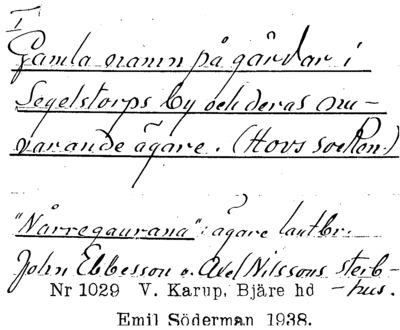 I
Gamla namn på gårdar i
Segelstorps by och deras nu-
varande ägare. (Hovs socken.)
"Nårregaurana": ägare lantbr.
John Ebbesson o. Axel Nilssons sterb-
hus.
Nr 1029 V. Karup, Bjäre hd
Emil Söderman 1938.